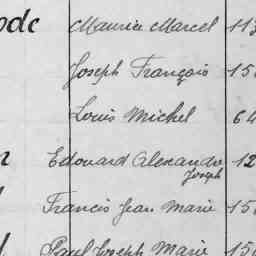 ode Maurice Marcel 113
Joseph François 15
Louis Michel 64
Edouard Alexandre 12
Joseph
Francis Jean Marie 15
Paul Joseph Marie 15